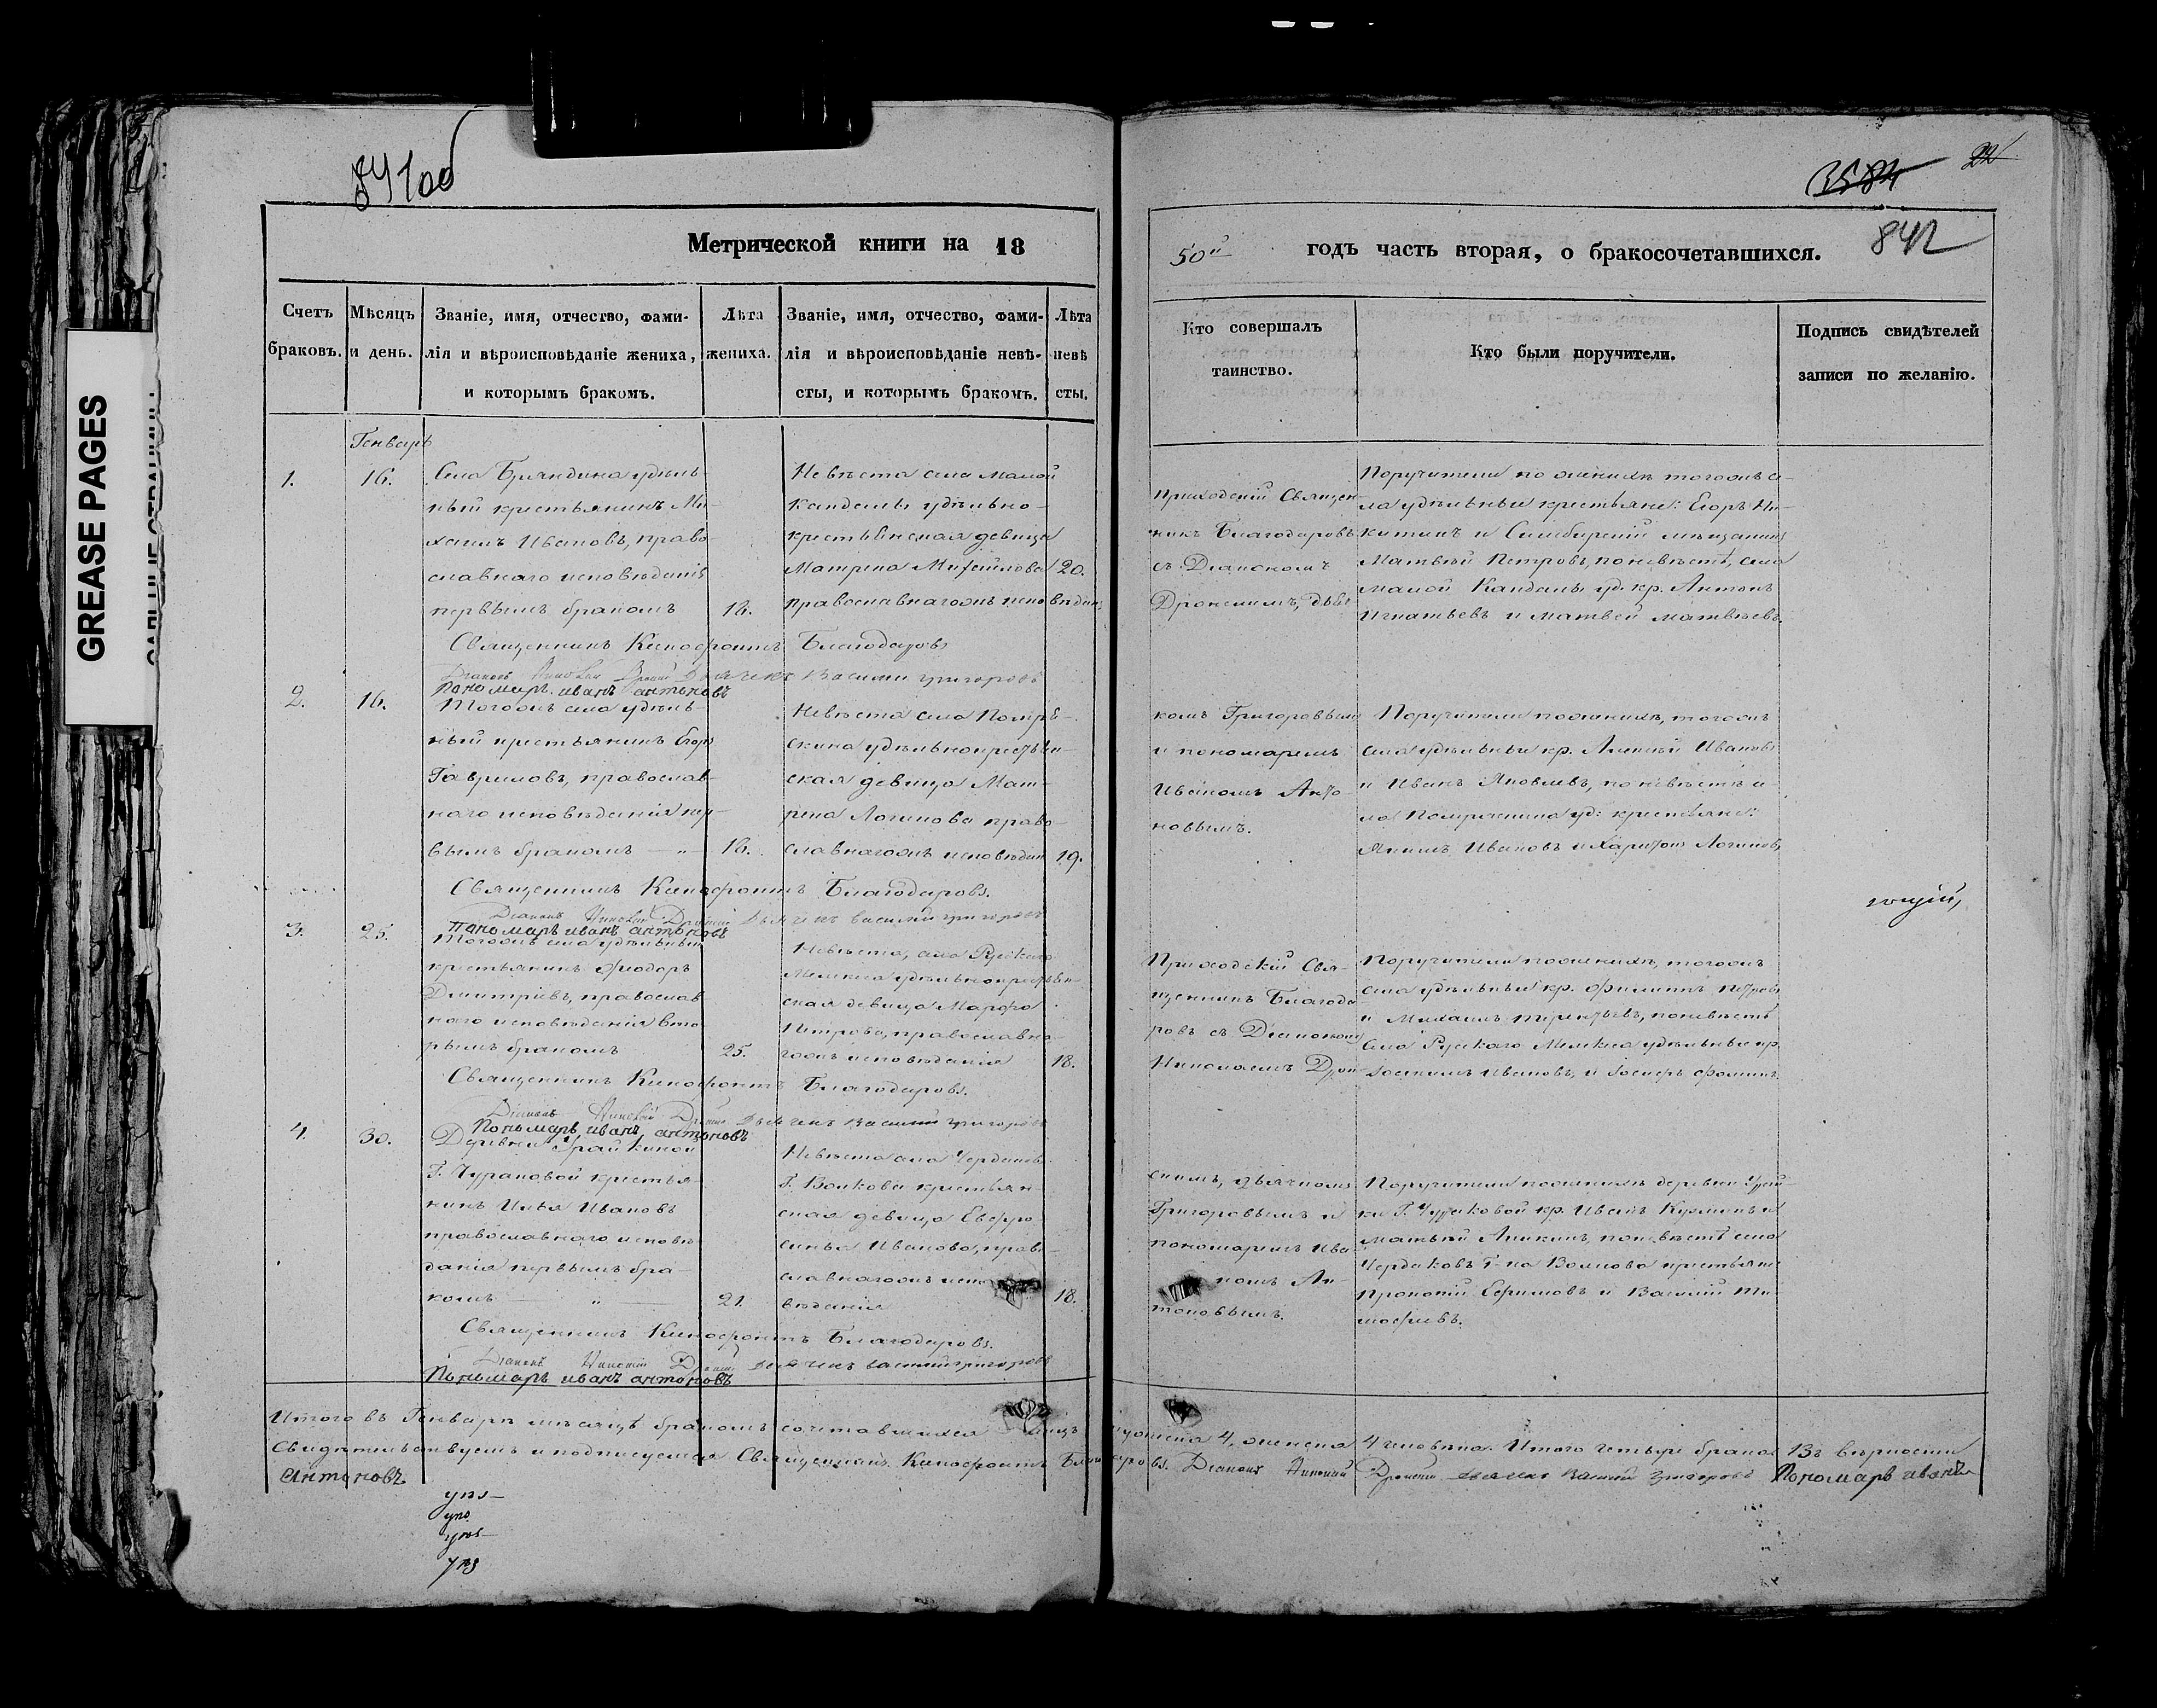 84 100
3584
22
842
Метрической книги на 18
50й годъ часть вторая, о бракосочетавшихся.
Счетъ браковъ.
Мѣсяцъ и день.
Званіе, имя, отчество, фами-
лія и вѣроисповѣданіе жениха,
и которымъ бракомъ.
Лѣта жениха.
Званіе, имя, отчество, фами-
лія и вѣроисповѣданіе невѣ-
сты, и которымъ бракомъ.
Лѣта невѣ
сты.
Кто совершалъ
таинство.
Кто были поручители.
Подпись свидѣтелей
записи по желанію.
Генварь
1.
16.
Села Бряндина удѣль-
ный крестьянинъ Ми-
хаилъ Ивановъ, право-
славнаго исповѣданія
первымъ бракомъ
18.
Невѣста села Малой
Кандалы удѣльно-
крестьянская девица
Матрена Михайлова 20.
православнагожъ исповѣдан
Приходскій Священ-
никъ Благодаровъ
съ Діакономъ
Поручители по женихѣ тогожъ се-
ла удѣльные крестьяне: Егоръ Ни-
китинъ и Симбирскій мѣщанинъ
Матвѣй Петровъ, по невѣстѣ, села
Малой Кандалы уд. кр. Антонъ
Игнатьевъ и Матвей Матвѣевъ.
Священникъ Ксенофонтъ Благодаровъ
Дьячекъ Василий Григоровъ
Пономарь иванъ антоновъ
2.
16.
Тогожъ села удѣль-
ный крестьянинъ Егоръ
Гавриловъ, православ-
наго исповѣданія пер-
вымъ бракомъ — „ — 18.
Невѣста села
удѣльнокрестьян-
ская девица Мат-
рена Логинова право-
славнагожъ исповѣдан 19.
комъ Григоровымъ
и пономаремъ
Иваномъ Анто-
новымъ.
Поручители по женихѣ, тогожъ
села удѣльные кр. Алексѣй Ивановъ
и Иванъ Яковлевъ, по невѣстѣ се-
ла уд: крестьяне:
Ивановъ и Харитонъ Логиновъ
Священникъ Ксенофонтъ Благодаровъ.
Дьячекъ василий григоровъ
Пономарь иванъ антоновъ
3.
25.
Тогожъ села удѣльный
крестьянинъ Феодоръ
Дмитріевъ, православ
наго исповѣданія вто
рымъ бракомъ
25.
Невѣста, села Рускаго
Мелекеса удѣльнокрестьян-
ская девица Марфа
Петрова, православна-
гожъ исповѣданія 18.
Приходскій Свя-
щенникъ Благода-
ровъ съ Діакономъ
Поручители по женихѣ, тогожъ
села удѣльные кр. Филиппъ Петровъ
и Михаилъ Терентьевъ, по невѣстѣ
села Рускаго Мелекеса удѣльные кр.
Ивановъ, и Фоминъ.
Священникъ Ксенофонтъ Благодаровъ.
Дьячекъ Василий Григоровъ
Пономарь иванъ антоновъ
4.
30.
Деревни Урайкиной
Г. Чураковой крестья-
нинъ Илья Ивановъ
православнаго исповѣ-
данія первымъ бра-
комъ — „ — 21.
Невѣста села Чердаковъ
Г. Волкова крестьян-
ская девица Евфро-
синья Иванова, право-
славнагожъ испо
вѣданія 18.
скимъ, дьячкомъ
Григоровымъ и
пономаремъ Ива-
номъ Ан-
тоновымъ.
Поручители по женихѣ деревни Урай-
ки Г. Чураковой кр. Иванъ и
Матвѣй Аникинъ, по невѣстѣ села
Чердаковъ Г-на Волкова крестьяне
Прокопій Ефимовъ и Василій Ти-
мофеевъ.
Священникъ Ксенофонтъ Благодаровъ.
Дьячекъ василий григоровъ
Пономарь иванъ антоновъ
Итого въ Генварѣ месяцѣ бракомъ сочетавшихся лицъ мужеска 4, женска 4 человѣка. Итого четыре брака. Въ вѣрности
Свидѣтельствуемъ и подписуемся Священникъ Ксенофонтъ Діаконъ Дьячекъ Василий Григоровъ Пономарь иванъ
антоновъ
GREASE PAGES